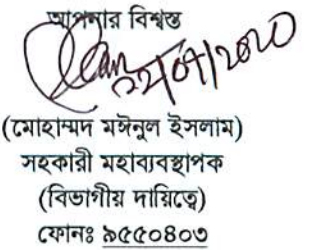 আপনার বিশ্বস্ত
২২/০৭/২০২০
(মোহাম্মদ মঈনুল ইসলাম)
সহকারী মহাব্যবস্থাপক
(বিভাগীয় দায়িত্বে)
ফোনঃ ৯৫৫০৪০৩